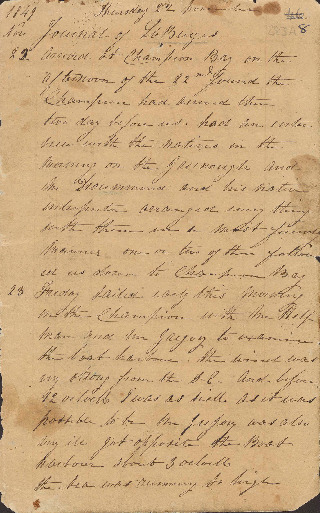 1849 Thursday 22
Nov Journal of L Burges
22 arrived at Champion Bay on the
afternoon of the 22nd found the
Champion had arrived there
two day before us. had an inter
view with the natives in the
morning on the and
Mr Drummond and his native
interpreter arranged every thing
with them in a most friendly
manner one or two of them follow
ed us down to Champion Bay
23 Friday Sailed early this morning
in the Champion with Mr Help
man and Mr Gregory to examine
the boat harbour. the wind was
very strong from the S.E. and before
12 oclock I was as sick as it was
possible to be Mr Gregory was also
very ill got opposite the Boat
harbour about 3 oclock
the sea was running so high